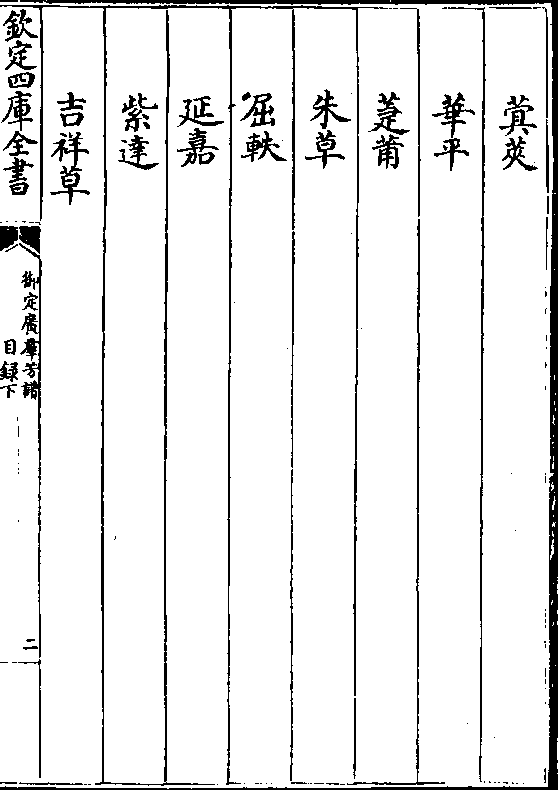 蓂莢
華平
萐莆
朱草
屈軼
延嘉
紫達
吉祥草
欽定四庫全書
御定廣羣芳譜
目録下
二